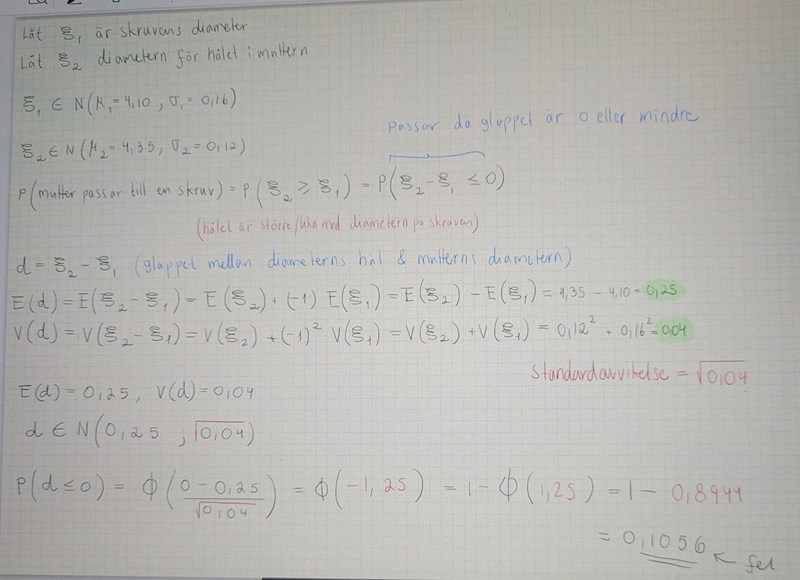 Låt ξ₁ är skruvens diameter
Låt ξ₂ diametern för hålet i muttern
ξ₁ ∈ N(μ₁=4,10, σ₁=0,16)
passar då glappet är 0 eller mindre
ξ₂ ∈ N(μ₂=4,35, σ₂=0,12)
P(mutter passar till en skruv) = P(ξ₂ ≥ ξ₁) = P(ξ₂-ξ₁ ≤ 0)
(hålet är större/lika med diametern på skruven)
d = ξ₂ - ξ₁ (glappet mellan diameterns hål & mutterns diametern)
E(d) = E(ξ₂ - ξ₁) = E(ξ₂) + (-1) E(ξ₁) = E(ξ₂) - E(ξ₁) = 4,35 - 4,10 = 0,25
V(d) = V(ξ₂ - ξ₁) = V(ξ₂) + (-1)² · V(ξ₁) = V(ξ₂) + V(ξ₁) = 0,12² + 0,16² = 0,04
Standardavvikelse = √0,04
E(d) = 0,25, V(d) = 0,04
d ∈ N(0,25, √0,04)
P(d ≤ 0) = Φ((0 - 0,25)/√0,04) = Φ(-1,25) = 1 - Φ(1,25) = 1 - 0,8944
= 0,1056 ← fel